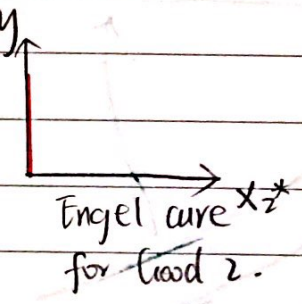 y
X₂*
Engel cure
for Good 2.